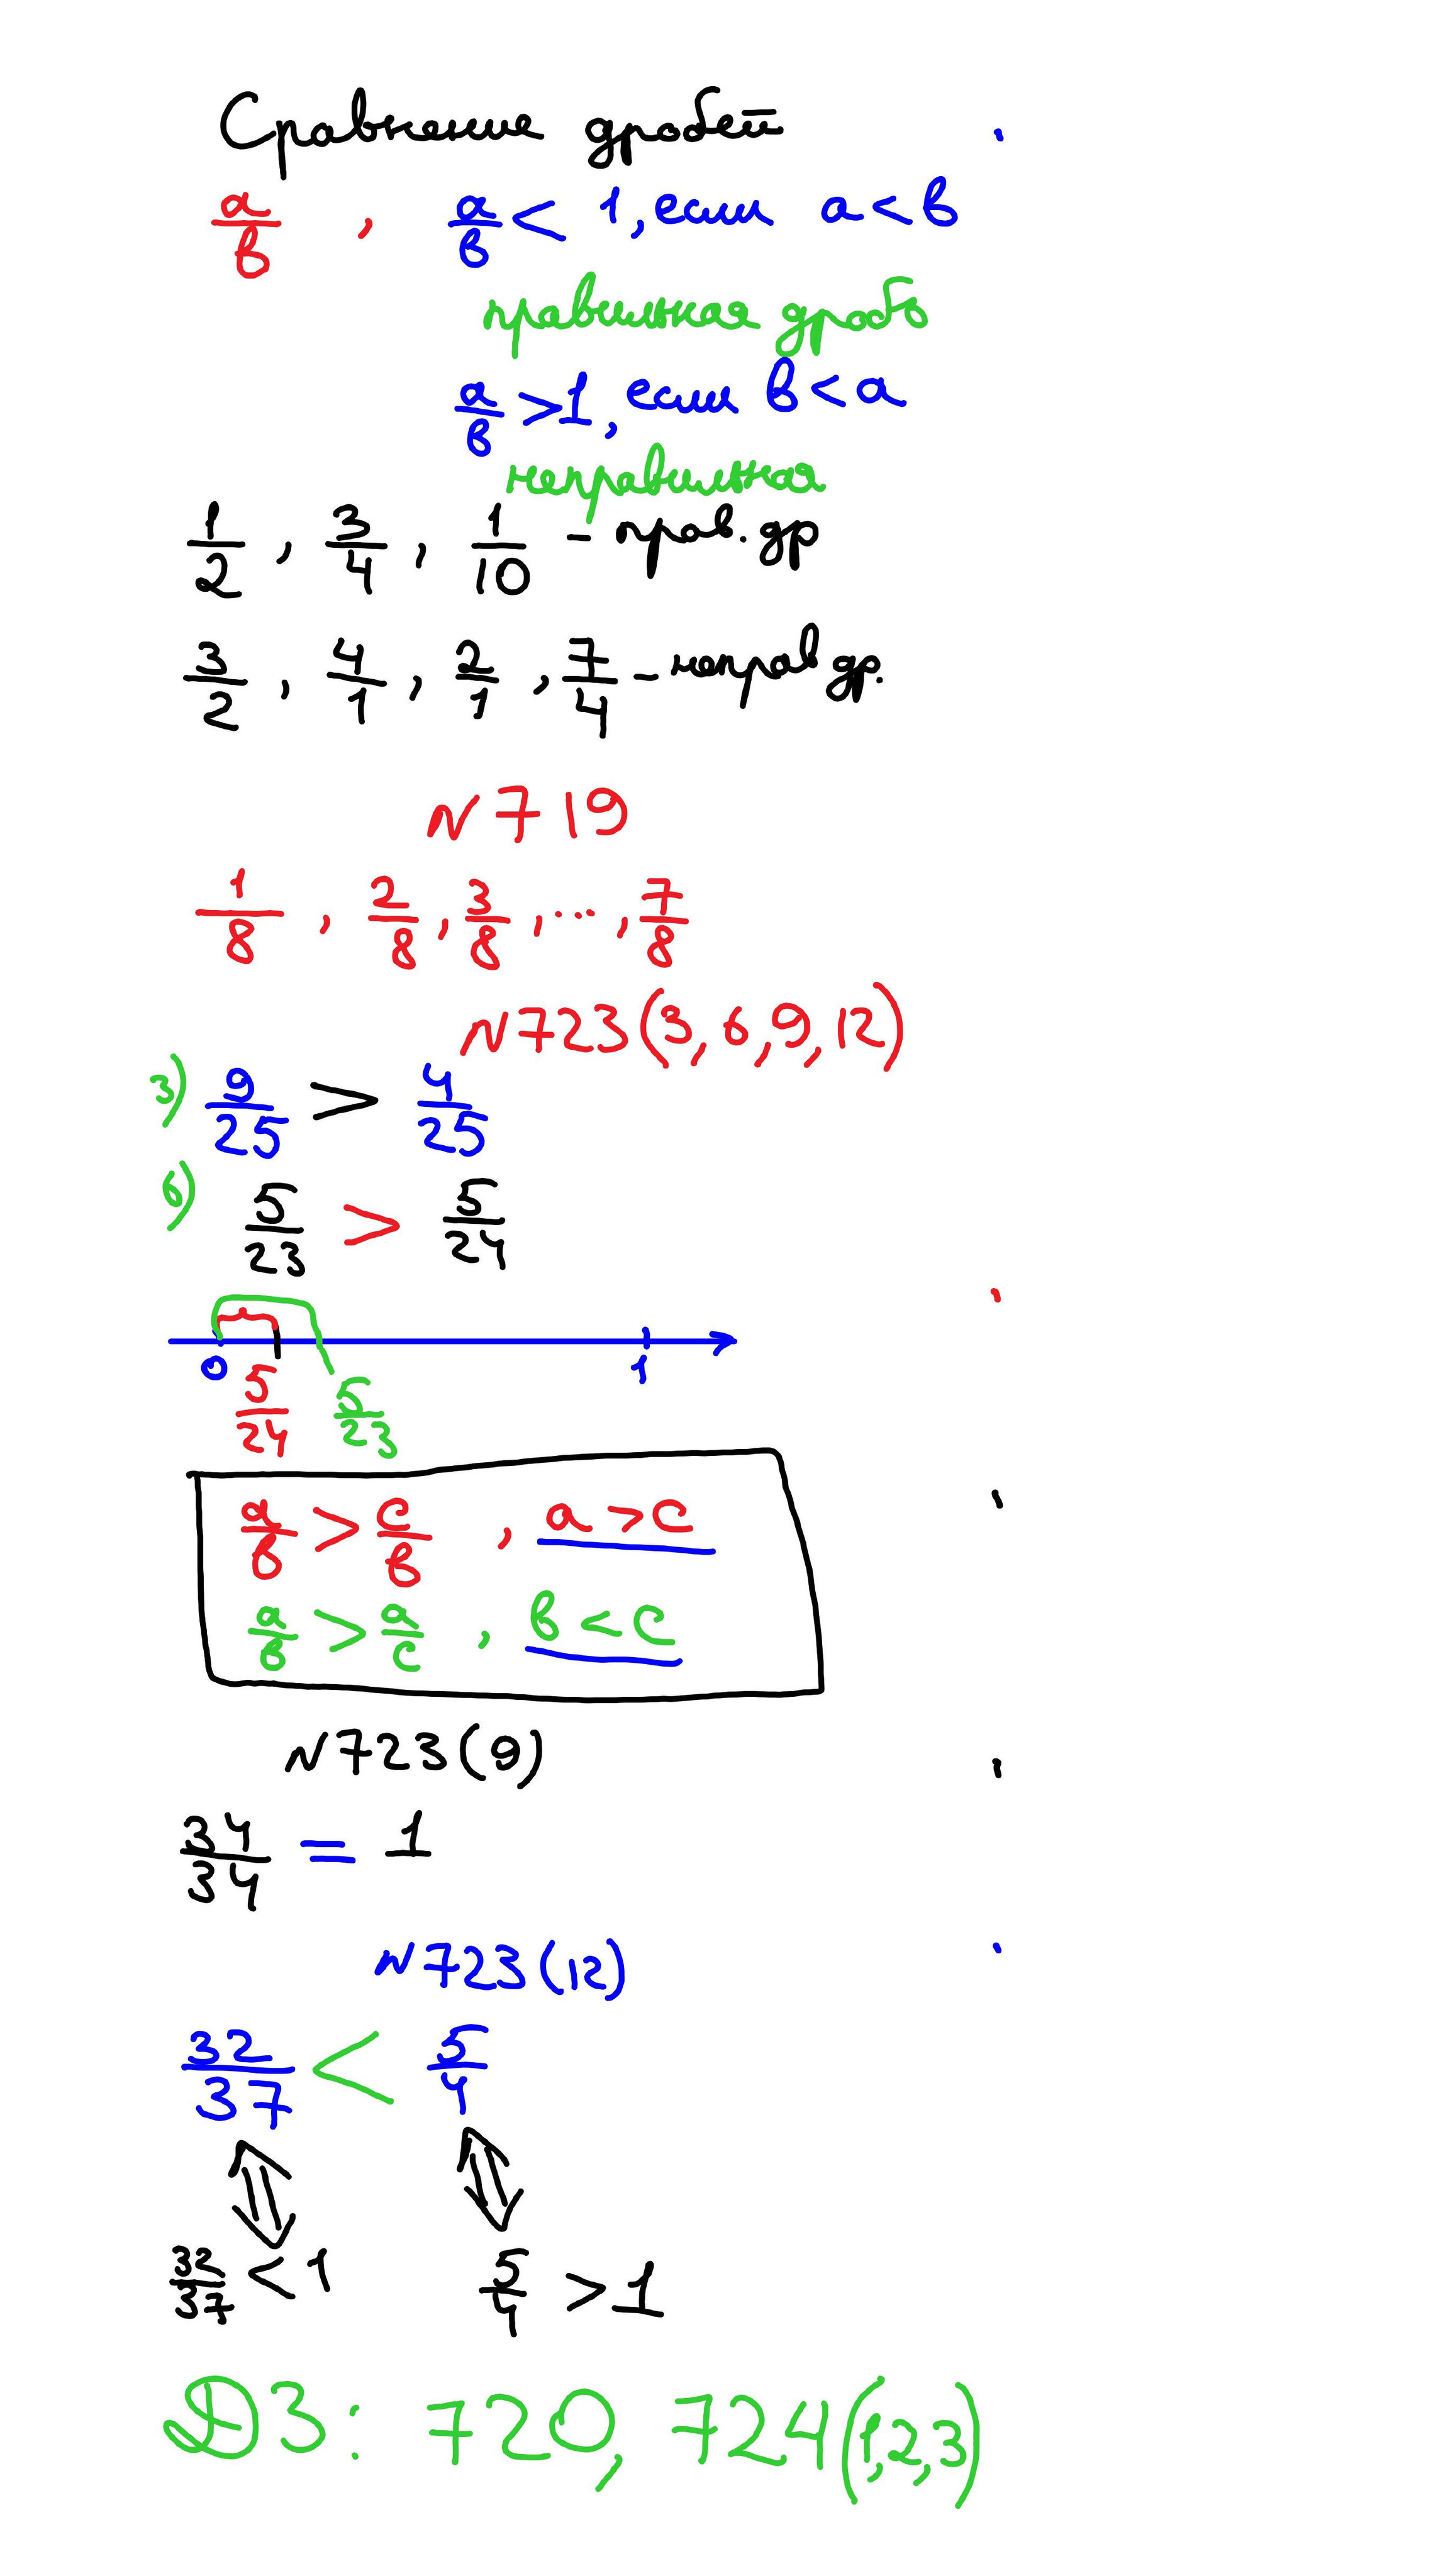 Сравнение дробей
a/b , a/b < 1, если a < b
правильная дробь
a/b > 1, если b < a
неправильная
1/2 , 3/4 , 1/10 - прав. др
3/2 , 4/1 , 2/1 , 7/4 - неправ др.
N 719
1/8 , 2/8 , 3/8 , ... , 7/8
N723(3, 6, 9, 12)
3) 9/25 > 4/25
6) 5/23 > 5/24
0 1
5/24 5/23
a/b > c/b , a > c
a/b > a/c , b < c
N723(9)
34/34 = 1
N723(12)
32/37 < 5/4
32/37 < 1 5/4 > 1
ДЗ: 720, 724(1,2,3)